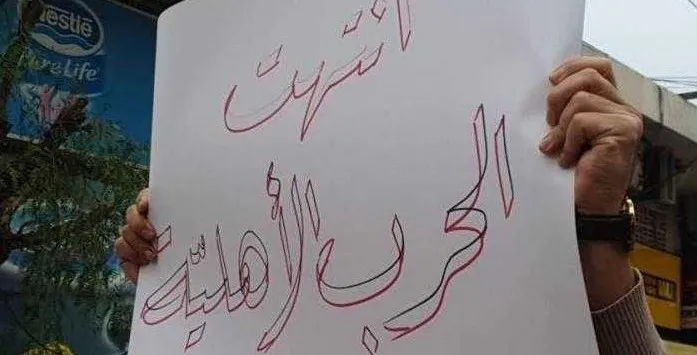 Nestlé
Pure Life
انتهت
الحرب الأهليّة